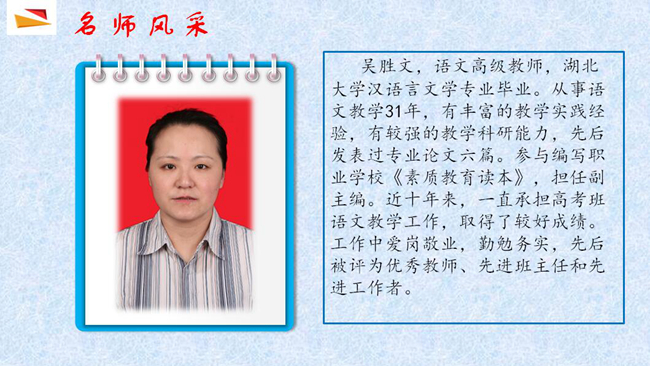 名师风采
吴胜文，语文高级教师，湖北
大学汉语言文学专业毕业。从事语
文教学31年，有丰富的教学实践经
验，有较强的教学科研能力，先后
发表过专业论文六篇。参与编写职
业学校《素质教育读本》，担任副
主编。近十年来，一直承担高考班
语文教学工作，取得了较好成绩。
工作中爱岗敬业，勤勉务实，先后
被评为优秀教师、先进班主任和先
进工作者。